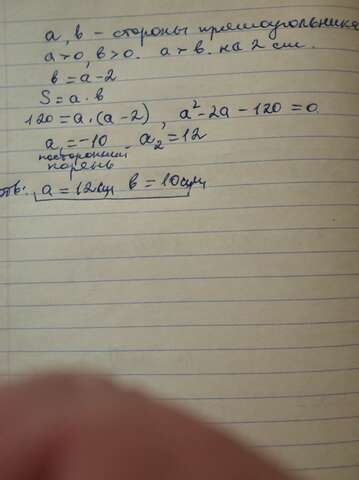 a, b - стороны прямоугольника
a>0, b>0. a > b на 2 см.
b = a-2
S = a·b
120 = a·(a-2), a²-2a-120=0
a₁=-10 a₂=12
посторонний
корень
тв: a = 12см b = 10см